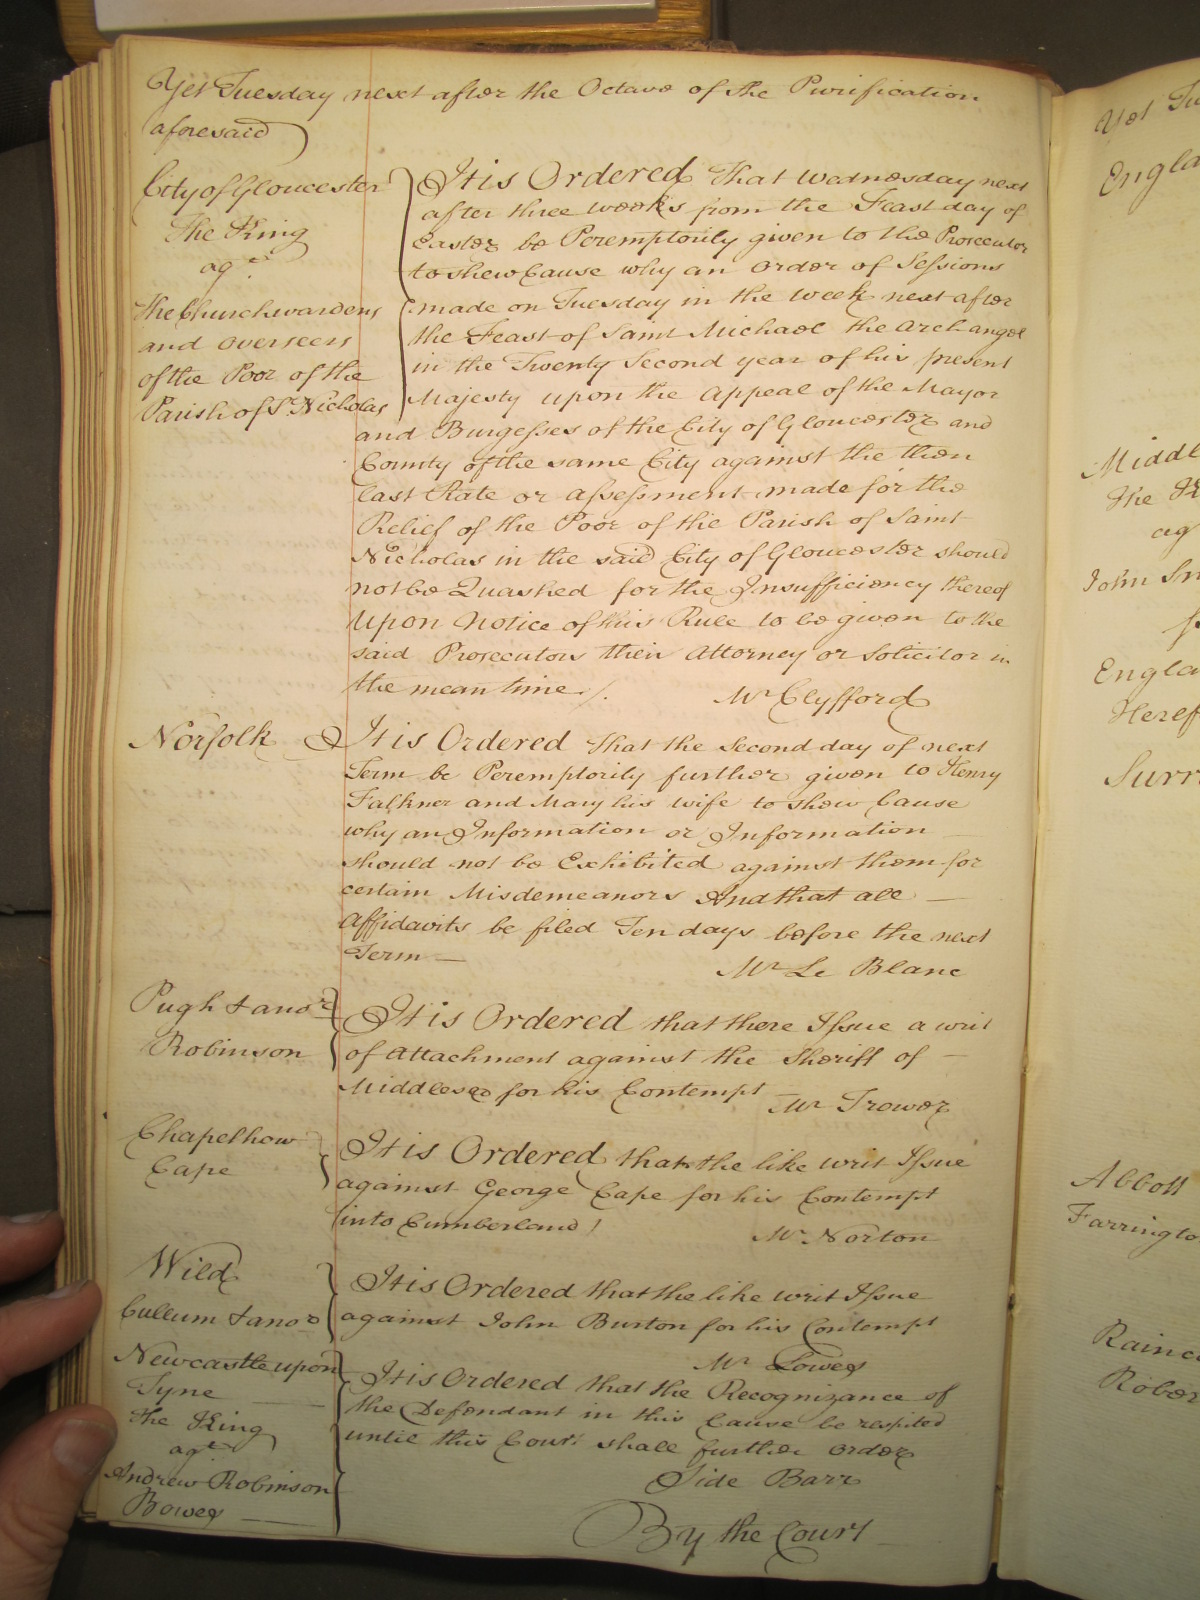 Yet Tuesday next after the Octave of the Purification
aforesaid
City of Gloucester
The King
agt.
the Churchwardens
and Overseers
of the Poor of the
Parish of St. Nicholas
It is Ordered That Wednesday next
after three weeks from the Feast day of
Easter be Peremptorily given to the Prosecutor
to shew Cause why an Order of Sessions
made on Tuesday in the Week next after
the Feast of Saint Michael the Archangel
in the Twenty Second year of his present
Majesty upon the Appeal of the Mayor
and Burgesses of the City of Gloucester and
County of the same City against the then
last Rate or Assessment made for the
Relief of the Poor of the Parish of Saint
Nicholas in the said City of Gloucester should
not be Quashed for the Insufficiency thereof
Upon Notice of this Rule to be given to the
said Prosecutors their Attorney or Solicitor in
the mean time /.
Mr Clyfford
Norfolk
It is Ordered that the Second day of next
Term be Peremptorily further given to Henry
Falkner and Mary his wife to shew Cause
why an Information or Information
should not be Exhibited against them for
certain Misdemeanors And that all
Affidavits be filed Ten days before the next
Term
Mr Le Blanc
Pugh & anor
Robinson
It is Ordered that there Issue a writ
of Attachment against the Sheriff of
Middlesex for his Contempt
Mr Trower
Chapelhow
Cape
It is Ordered that the like writ Issue
against George Cape for his Contempt
into Cumberland /
Mr Norton
Wild
Cullum & anor
It is Ordered that the like writ Issue
against John Burton for his Contempt
Mr Lowes
Newcastle upon
Tyne
The King
agt
Andrew Robinson
Bowes
It is Ordered that the Recognizance of
the Defendant in this Cause be respited
until this Court shall further order
Side Barr
By the Court
Yet Tu
Engla
Middle
The K
ag
John Sm
Engla
Heref
Surr
Abbott
Farringto
Rainc
Rober